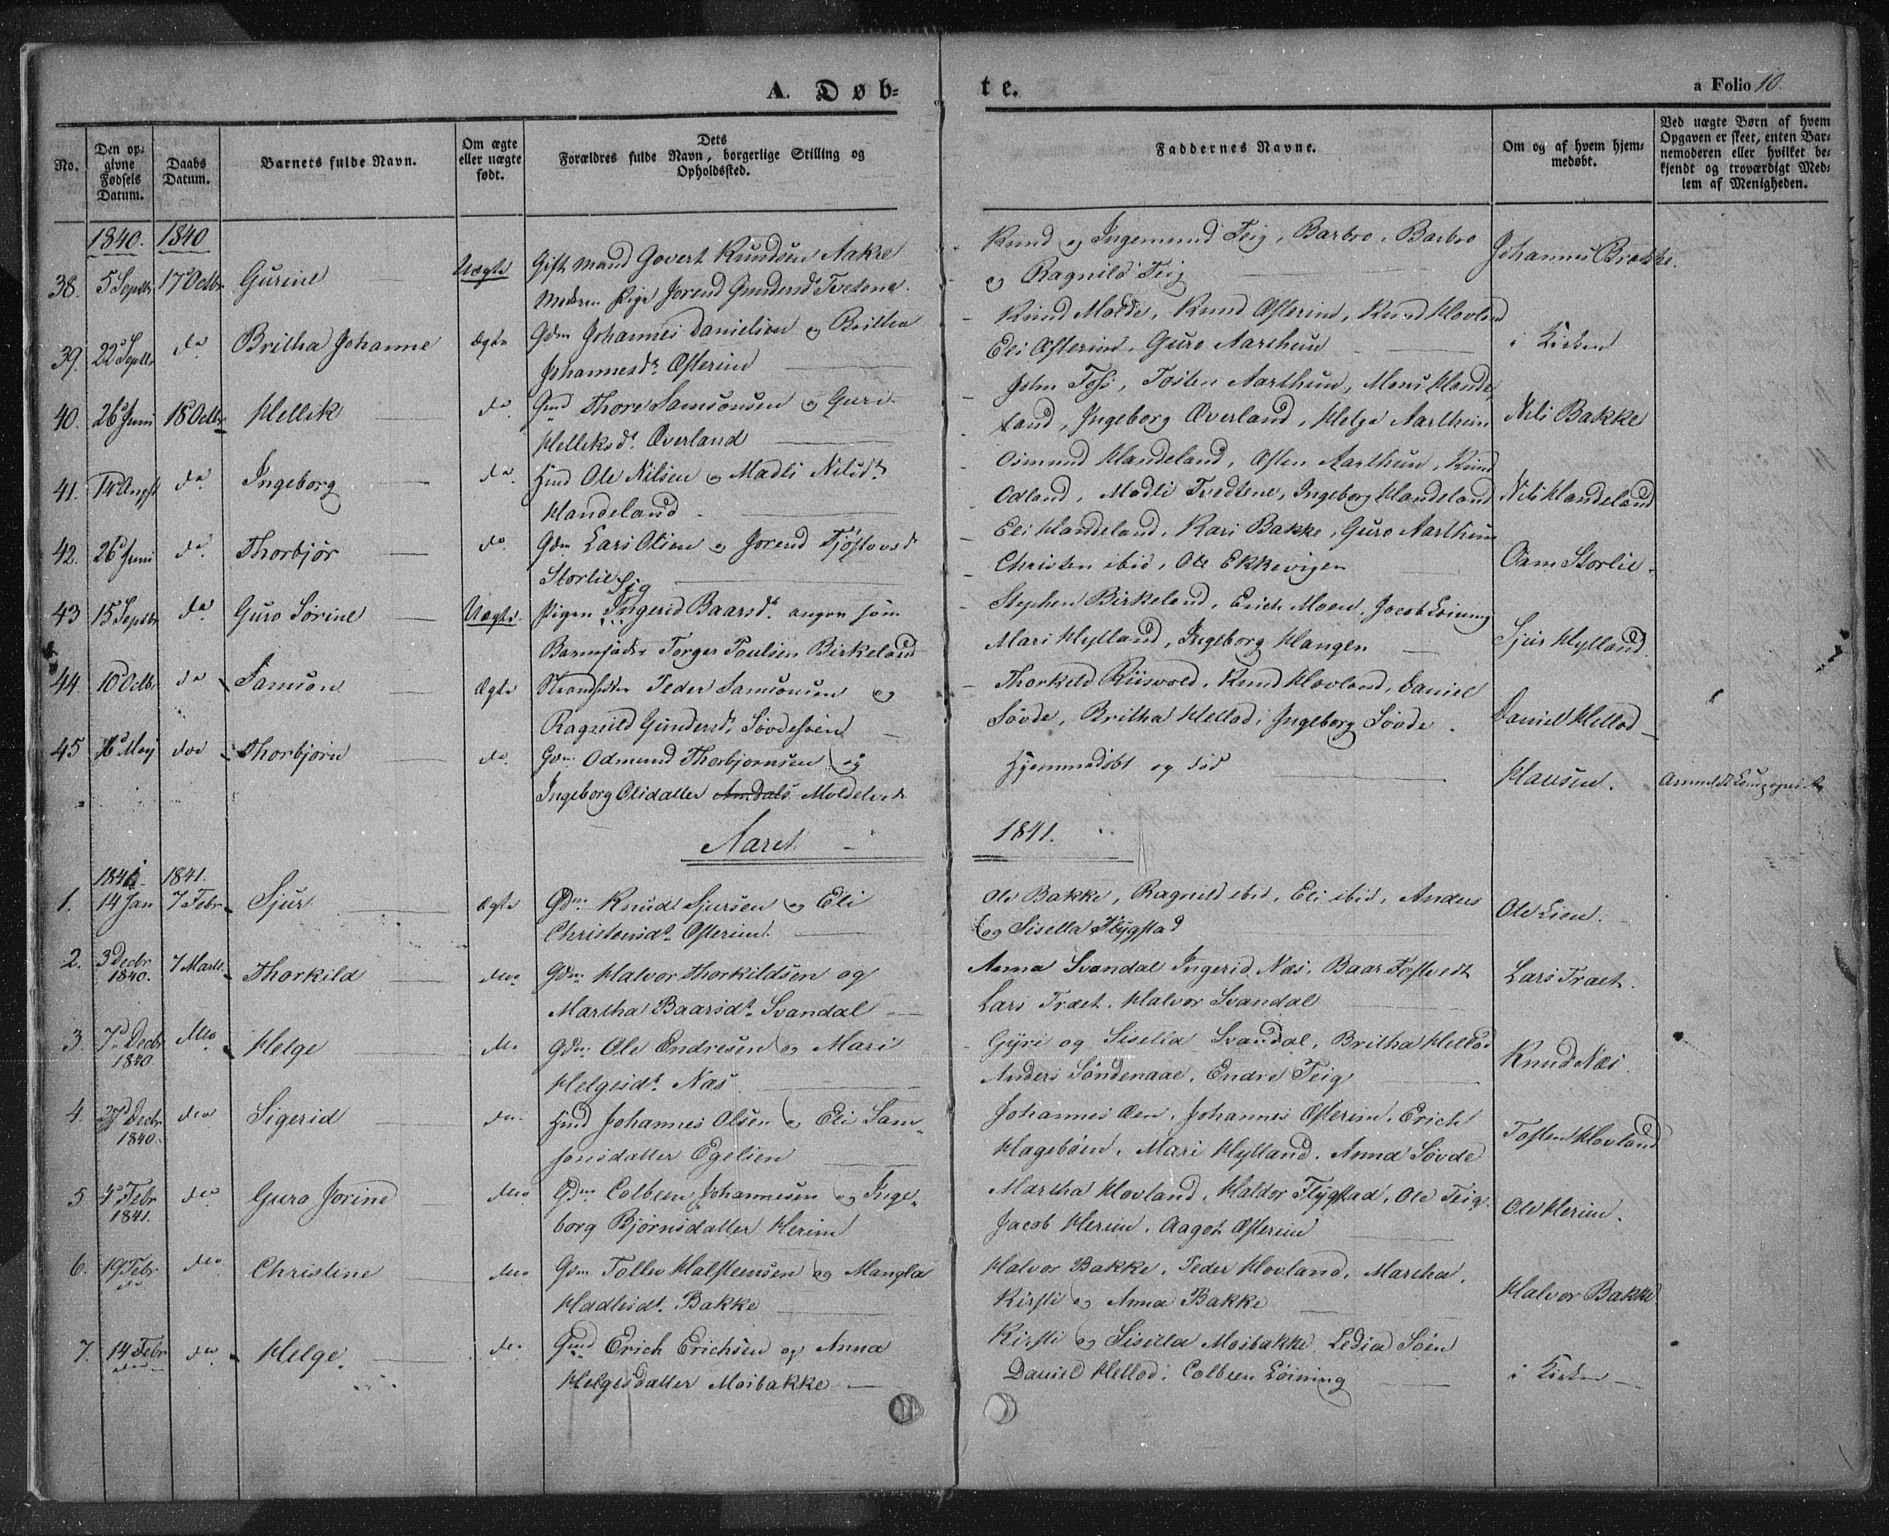 A. Døb-
te.
a Folio 10.
No.
Den op-
givne
Fødsels
Datum.
Daabs
Datum.
Barnets fulde Navn.
Om ægte
eller uægte
født.
Dets
Forældres fulde Navn, borgerlige Stilling og
Opholdssted.
Faddernes Navne.
Om og af hvem hjem-
medøbt.
Ved uægte Børn af hvem
Opgaven er skeet, enten Bar-
nemoderen eller hvilket be-
kjendt og troværdigt Med-
lem af Menigheden.
1840. 1840
38. 5 Septbr 17 Octbr Gurine Uægte Gift Mand Govert Knudsen Aakre
Moderen Pige Jorend Gundersd. Tvetene.
Knud og Ingemund Teig, Barbro, Barbro
og Ragnild Teig
Johannes Brakke.
39. 22 Septbr do Britha Johanne Ægte Gdm Johannes Danielsen og Britha
Johannesdr. Østerim
Knud Molde, Knud Østerim, Knud Hovland
Eli Østerim, Guro Aarthun
i Kirken
40. 26 Juni 18 Octbr Hellik do. Gmd Thore Samsonsen og Guri
Helliksdr. Överland
John Tofs, Tosten Aarthun, Mons Hande-
land, Ingeborg Överland, Helge Aarthun
Nils Bakke
41. 14 Augst do Ingeborg do. Hmd Ole Nilsen og Madli Nilsdr.
Handeland.
Osmund Handeland, Østen Aarthun, Knud
Odland, Madli Tvedtene, Ingeborg Handeland
Nils Handeland
42. 26 Juni do. Thorbjør do. Gdm Lars Olsen og Jorend Tjøstovsd
Storlie
Eli Handeland, Kari Bakke, Guro Aarthun
Christen ibid, Ole Ekkevigen
Oam Storlie.
43 15 Septbr do Guro Sørine Uægte. Pigen Ingerid Baarsdr. angen som
Barnefader Torger Poulsen Birkeland
Stephen Birkeland, Erich Moen, Jacob Löining
Mari Hylland, Ingeborg Hangen
Sjur Hylland.
44. 10 Octbr do Samson Ægte Strandsidder Peder Samsonsen og
Ragnild Gundersdr. Søvdesøen
Thorkeld Riisvold, Knud Hovland, Daniel
Søvde, Britha Hellod, Ingeborg Søvde.
Daniel Hellod
45 16 Maj do Thorbjørn do. Gdm Odmund Thorbjørnsen og
Ingeborg Olsdatter Amdals Moldelvet
Hjemmedøbt og død
Hausen.
Aaret 1841.
1841 1841.
1. 14 Jan 7 Febr Sjur Ægte Gdm Knud Sjursen og Eli
Christensdr. Østerim.
Ole Bakke, Ragnild ibid, Eli ibid, Anders
og Sisella Flygstad
Ole Lien.
2. 3 Decbr
1840. 7 Marts Thorkild do Gdm Halvor Thorkildsen og
Martha Baarsdr. Svandal
Anna Svandal Ingerid Næs, Baar Tostvedt
Lars Træet, Halvor Svandal
Lars Træet.
3. 7 Decbr
1840 do Helge do Gdm Ole Endresen og Mari
Helgesdr. Næs
Gyri og Siselia Svandal, Britha Hellod
Anders Söndenaae, Endre Teig
Knud Næs.
4. Decbr
1840. do Sigerid do. Hmd Johannes Olsen og Eli Sam-
sonsdatter Egelien
Johannes Oen, Johannes Østerim, Erich
Hagebøen, Mari Hylland, Anna Søvde
Tosten Hovland
5 4 Febr
1841. do Guro Jorine do Gdm Colbeen Johannesen og Inge-
borg Bjørnsdatter Herim
Martha Hovland, Haldor Flygstad, Ole Teig
Jacob Herim, Aagot Østerim
Ole Herim.
6. 19 Febr
do do Christine do Gdm Tollev Halsteensen og Mangla
Hadlesdr. Bakke
Halvor Bakke, Peder Hovland, Martha,
Kirsti og Anna Bakke
Halvor Bakke
7. 14 Febr
do do Helge. do Gmd Erich Erichsen og Anna
Helgesdatter Mosbakke
Kirsti og Sisella Mosbakke, Ledia Søen
Daniel Hellod, Colbeen Löining
i Kirken